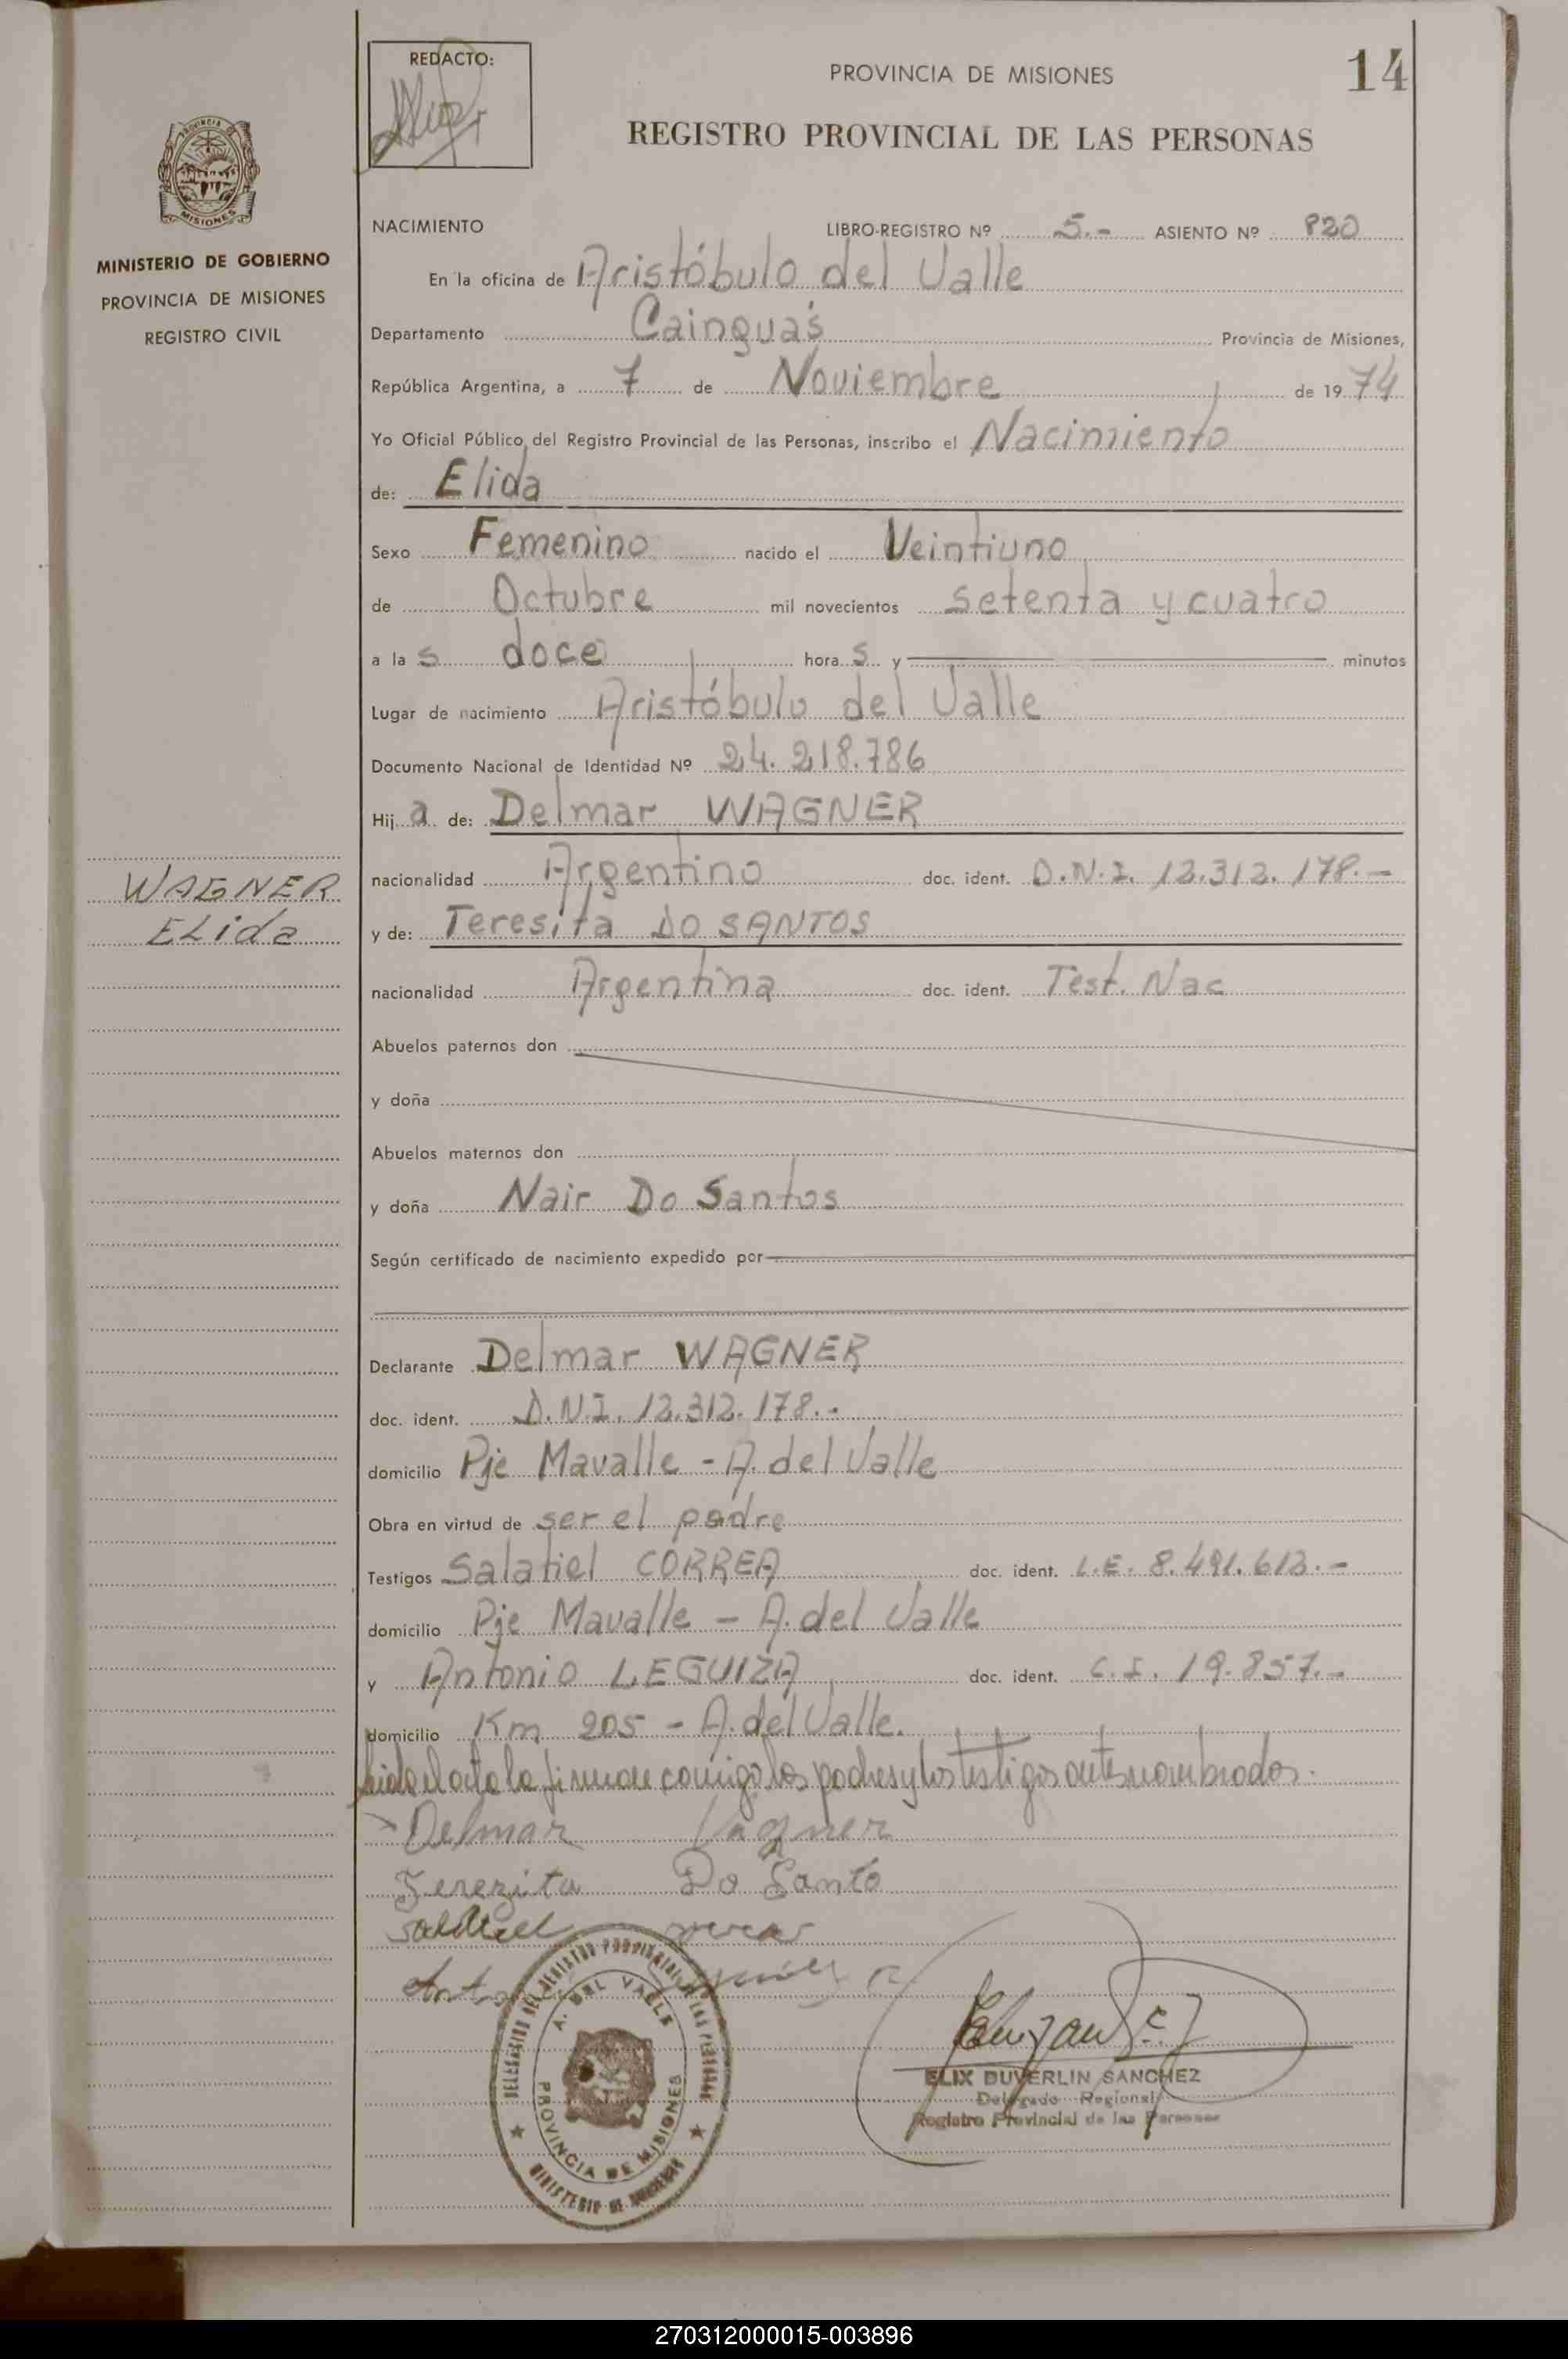 REDACTO:
PROVINCIA DE MISIONES
14
REGISTRO PROVINCIAL DE LAS PERSONAS
PROVINCIA DE
MISIONES
MINISTERIO DE GOBIERNO
PROVINCIA DE MISIONES
REGISTRO CIVIL
NACIMIENTO LIBRO-REGISTRO Nº 5.- ASIENTO Nº 820
En la oficina de Aristóbulo del Valle
Departamento Cainguás Provincia de Misiones,
República Argentina, a 7 de Noviembre de 1974
Yo Oficial Público del Registro Provincial de las Personas, inscribo el Nacimiento
de: Elida
Sexo Femenino nacido el Veintiuno
de Octubre mil novecientos setenta y cuatro
a las doce horas y minutos
Lugar de nacimiento Aristóbulo del Valle
Documento Nacional de Identidad Nº 24.218.786
Hija de: Delmar WAGNER
nacionalidad Argentino doc. ident. D.N.I. 12.312.178.-
WAGNER
Elida
y de: Teresita DO SANTOS
nacionalidad Argentina doc. ident. Test. Nac
Abuelos paternos don
y doña
Abuelos maternos don
y doña Nair Do Santos
Según certificado de nacimiento expedido por
Declarante Delmar WAGNER
doc. ident. D.N.I. 12.312.178.-
domicilio Pje Mavalle - A. del Valle
Obra en virtud de ser el padre
Testigos Salatiel CORREA doc. ident. L.E. 8.491.613.-
domicilio Pje Mavalle - A. del Valle
y Antonio LEGUIZA doc. ident. C.I. 19.857.-
domicilio Km 205 - A. del Valle.
el acta la firman conmigo los padres y los testigos antes nombrados.
Delmar Vagner
Terezita Do Santo
DELEGACION DEL REGISTRO PROVINCIAL DE LAS PERSONAS
A. DEL VALLE
PROVINCIA DE MISIONES
MINISTERIO DE GOBIERNO
ELIX DUVERLIN SANCHEZ
Delegado Regional
Registro Provincial de las Personas
270312000015-003896